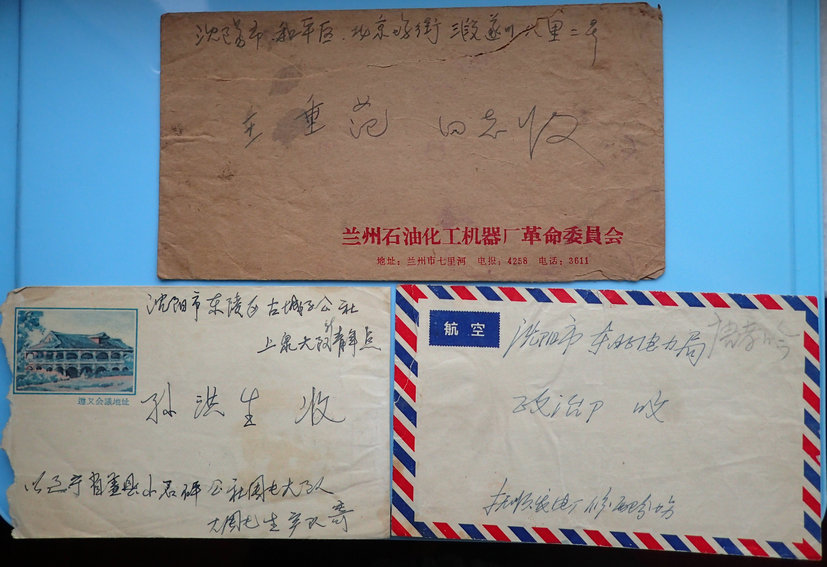 沈阳市 和平区 北京 街 三段遂川 里二号
王重范 同志收
兰州石油化工机器厂革命委員会
地址：兰州市七里河 电报：4258 电话：3611
沈阳市东陵区古城子公社
上泉大队青年点
遵义会議地址
孙洪生 收
辽宁省盖县小石硼公社周屯大队
大周屯生产队寄
航空
沈阳市东北电力局
政治部 收
抚顺发电厂